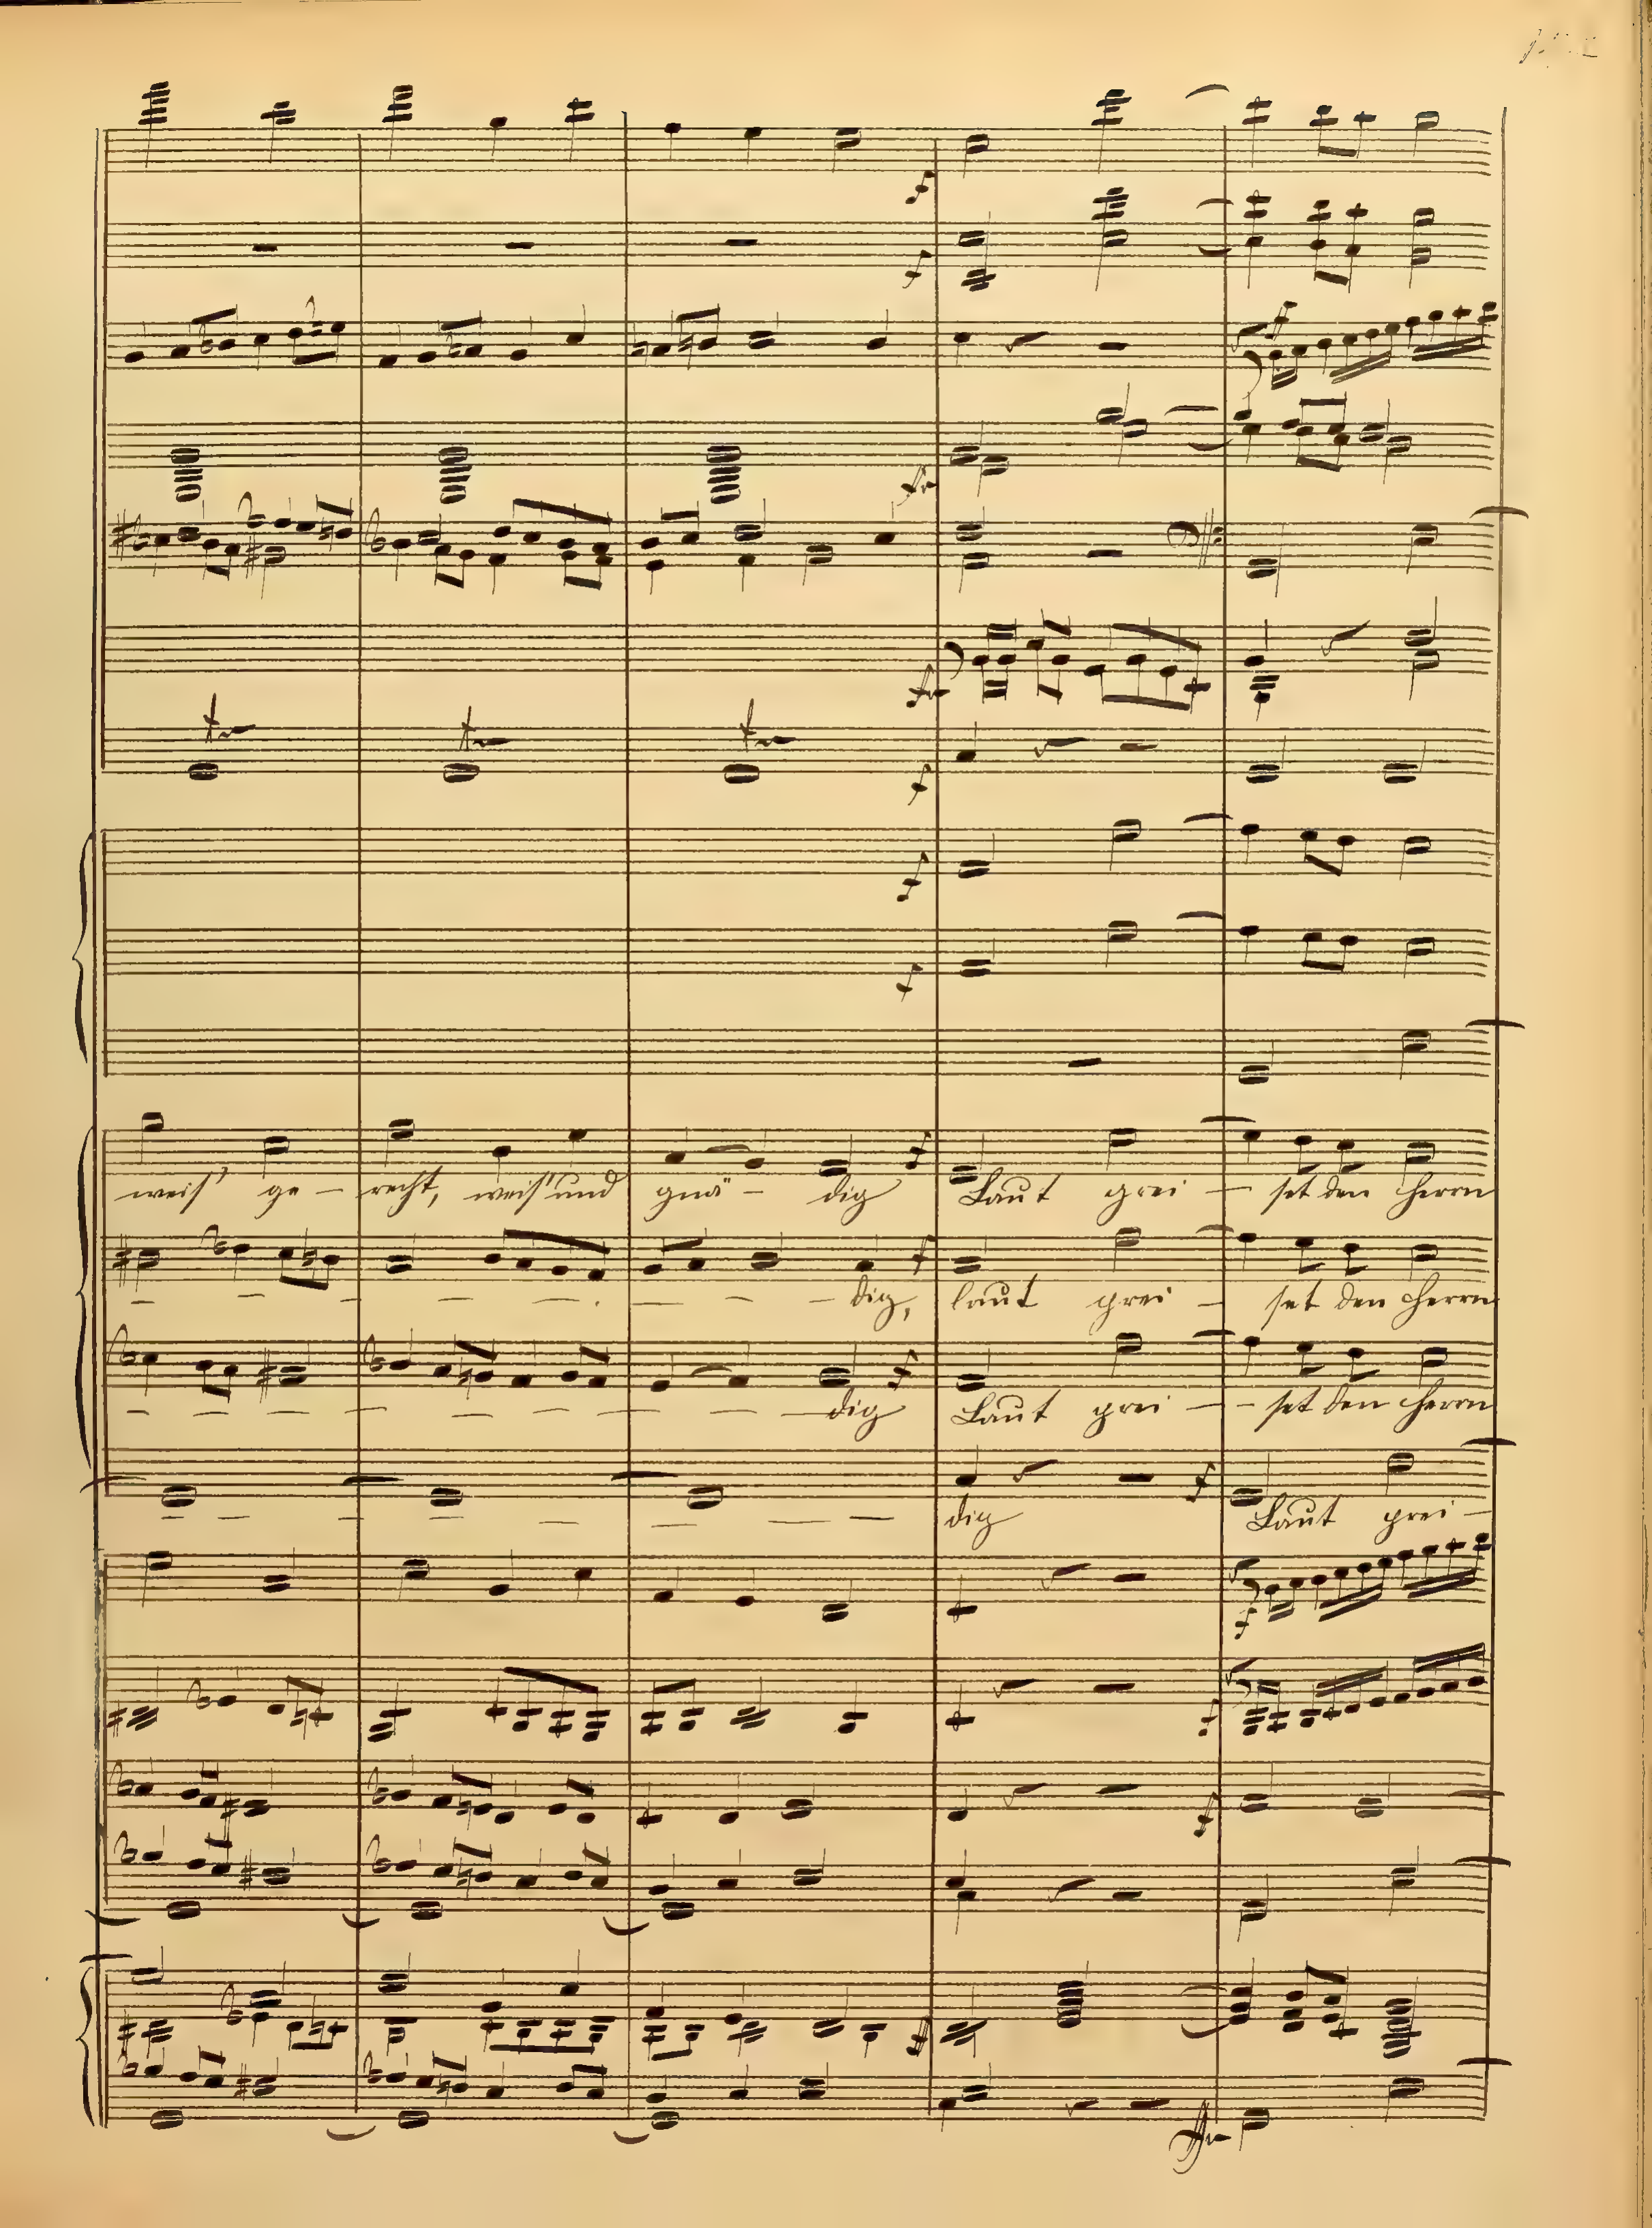 f
f
f
weis' ge - recht, weis' und gnä - dig Laut prei - set den Herrn
dig, laut prei - set den Herrn
dig Laut prei - set den Herrn
dig Laut prei -